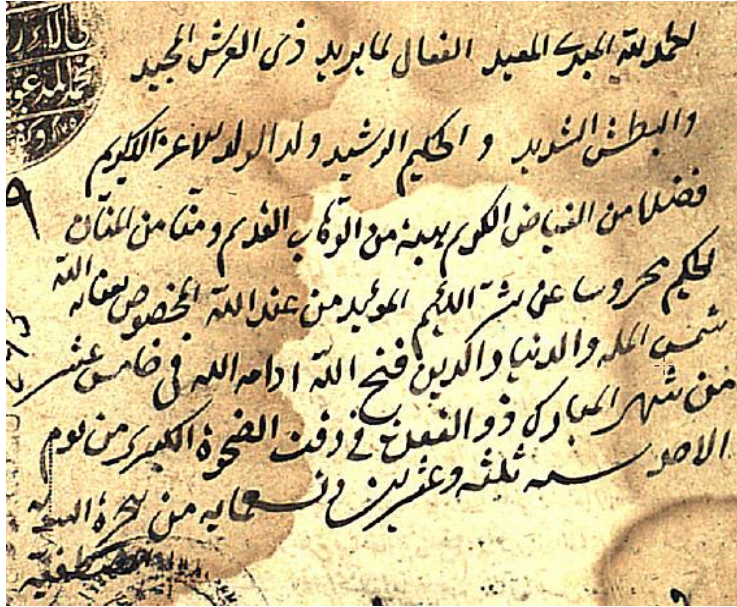 الحمد لله المبدئ المعيد الفعال لما يريد ذى العرش المجيد
والبطش الشديد و الحكيم الرشيد ولد الولد الاعز الكريم
فضلا من الفياض الكريم هبة من الوهاب القديم ومنّا من المنّان
الحكيم محروسا عن شرّ اللئيم الموئيد من عند الله المخصوص بعناية الله
شمس الملة والدنيا والدين فتح الله ادامه الله فى خامس عشر
من شهر المبارك ذو القعدة في وقت الضحوة الكبرى من يوم
الاحد سنه ثلثه وعشرين و تسعمايه من هجرة النبويّة
المصطفيّة